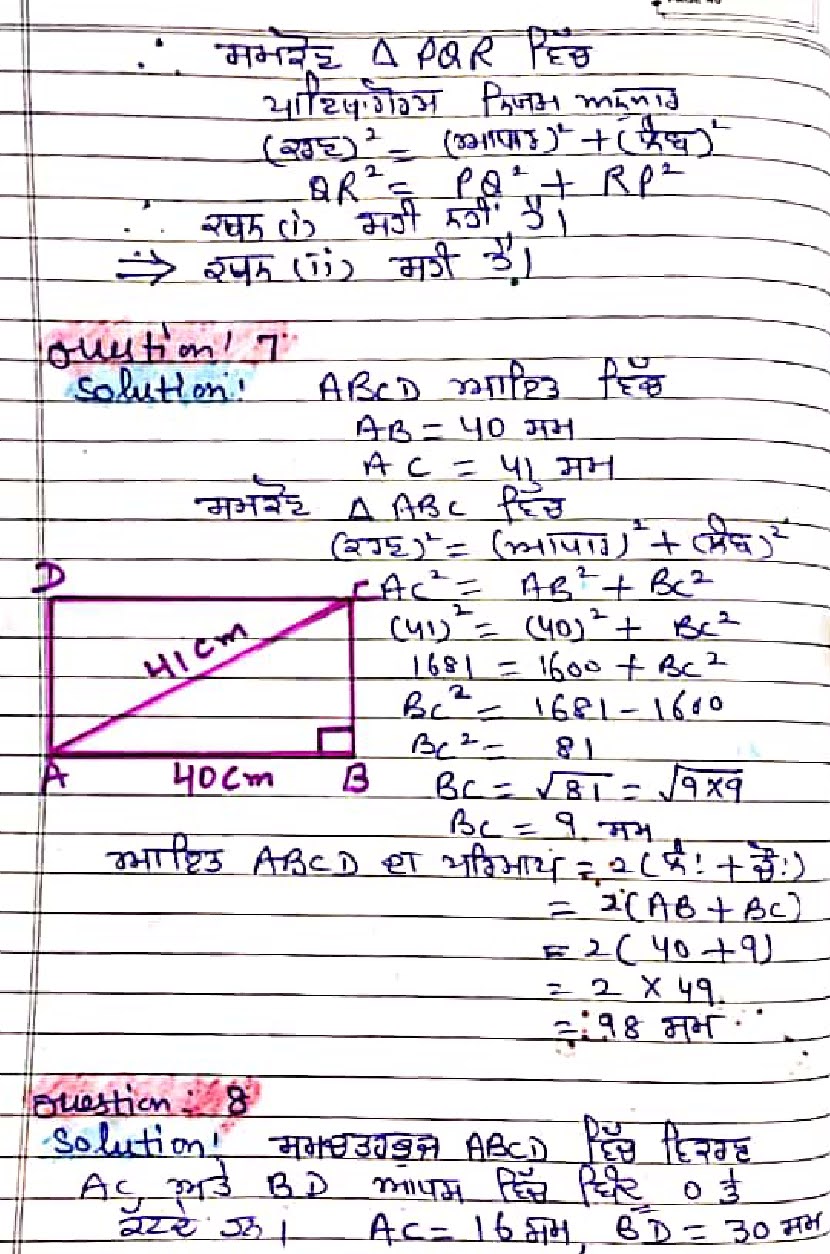 ∴ ਸਮਕੋਣ Δ PQR ਵਿੱਚ
ਪਾਇਥਾਗੋਰਸ ਨਿਯਮ ਅਨੁਸਾਰ
(ਕਰਣ)² = (ਆਧਾਰ)² + (ਲੰਬ)²
QR² = PQ² + RP²
∴ ਕਥਨ (i) ਸਹੀ ਨਹੀਂ ਹੈ।
⇒ ਕਥਨ (ii) ਸਹੀ ਹੈ।
Question! 7
Solution! ABCD ਆਇਤ ਵਿੱਚ
AB = 40 ਸਮ
AC = 41 ਸਮ
ਸਮਕੋਣ Δ ABC ਵਿੱਚ
(ਕਰਣ)² = (ਆਧਾਰ)² + (ਲੰਬ)²
D C AC² = AB² + BC²
41cm (41)² = (40)² + BC²
1681 = 1600 + BC²
BC² = 1681 - 1600
BC² = 81
A 40cm B BC = √81 = √9×9
BC = 9 ਸਮ
ਆਇਤ ABCD ਦਾ ਪਰਿਮਾਪ = 2(ਲੰ! + ਚੌ!)
= 2(AB + BC)
= 2(40 + 9)
= 2 × 49
= 98 ਸਮ
Question : 8
Solution! ਸਮਚਤਰਭੁਜ ABCD ਵਿੱਚ ਵਿਕਰਣ
AC ਅਤੇ BD ਆਪਸ ਵਿੱਚ ਬਿੰਦੂ O ਤੇ
ਕੱਟਦੇ ਹਨ। AC = 16 ਸਮ, BD = 30 ਸਮ